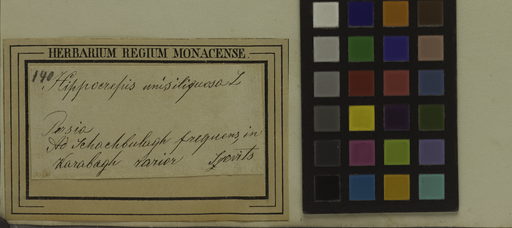 HERBARIUM REGIUM MONACENSE.
140 Hippocrepis unisiliquosa L
Persia
Ad Schachbulagh frequens, in
Karabagh rarior Szovits